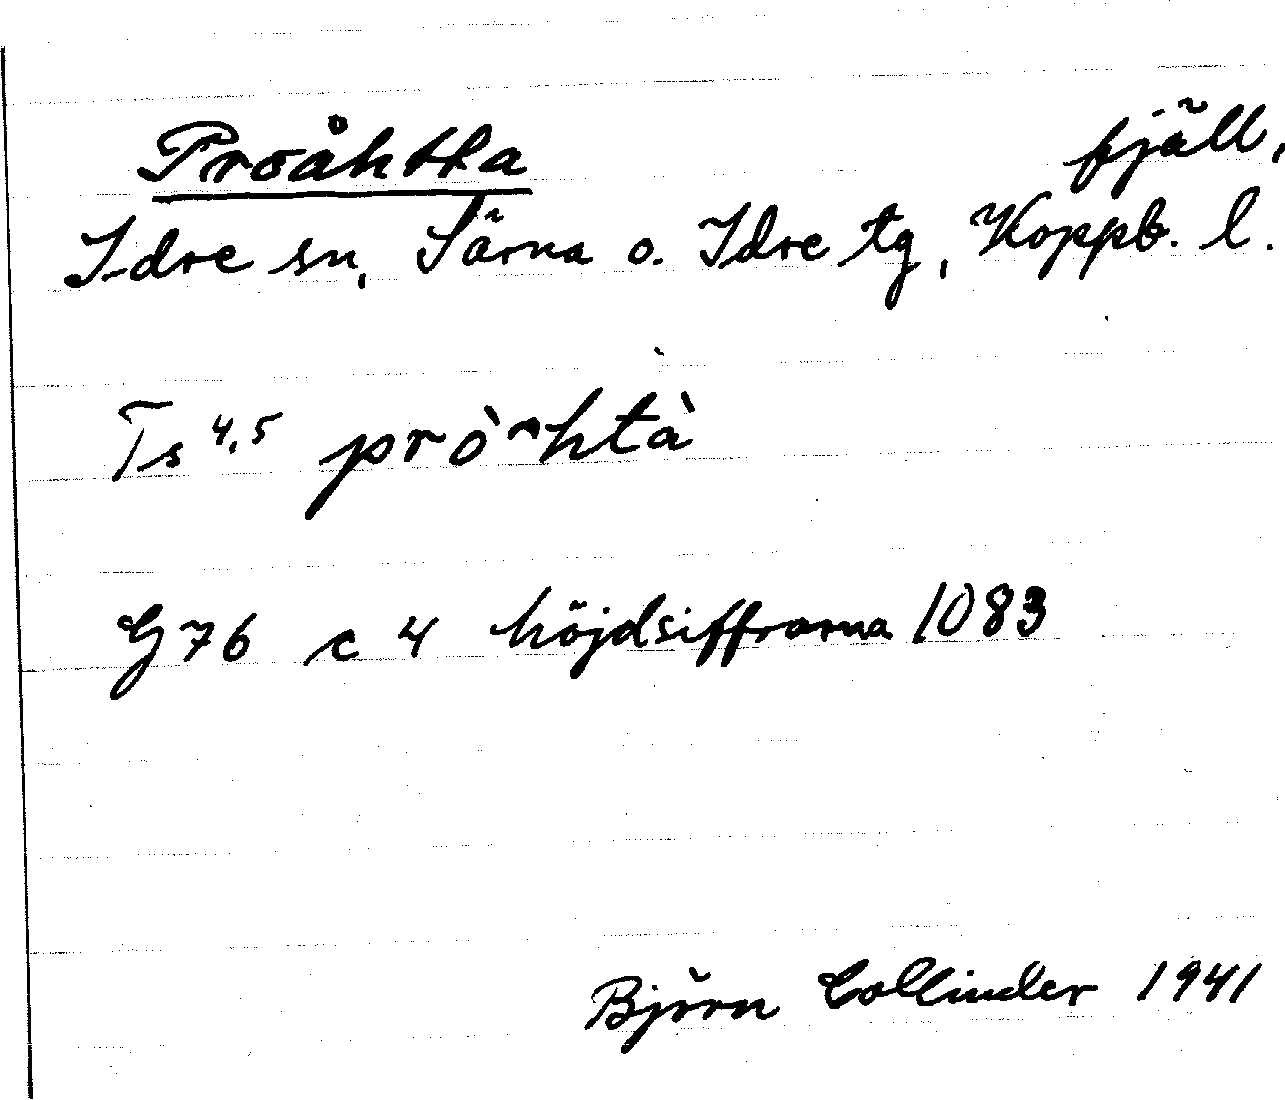 Proåhtta fjäll,
Idre sn, Särna o. Idre tg, Koppb. l.
Ts 4,5 prò^htà
G76 c 4 höjdsiffrorna 1083
Björn Collinder 1941